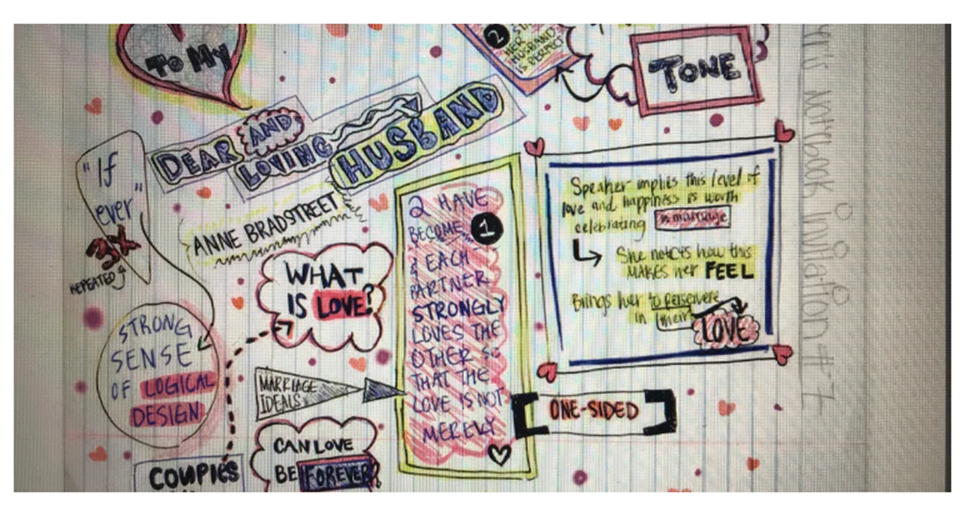 To My
DEAR AND
LOVING
HUSBAND
ANNE BRADSTREET
"If
ever"
3x
REPEATED
STRONG
SENSE
OF LOGICAL
DESIGN
WHAT
IS LOVE?
MARRIAGE
IDEALS
CAN LOVE
BE FOREVER
COUPLES
2 HAVE
BECOME 1
& EACH
PARTNER
STRONGLY
LOVES THE
OTHER SO
THAT THE
LOVE IS NOT
MERELY
ONE-SIDED
2
HER
HUSBAND
IS PERFECT
TONE
Speaker implies this level of
love and happiness is worth
celebrating in marriage
She notices how this
MAKES her FEEL
Brings her to persevere
in their
LOVE
notebook invitation #7